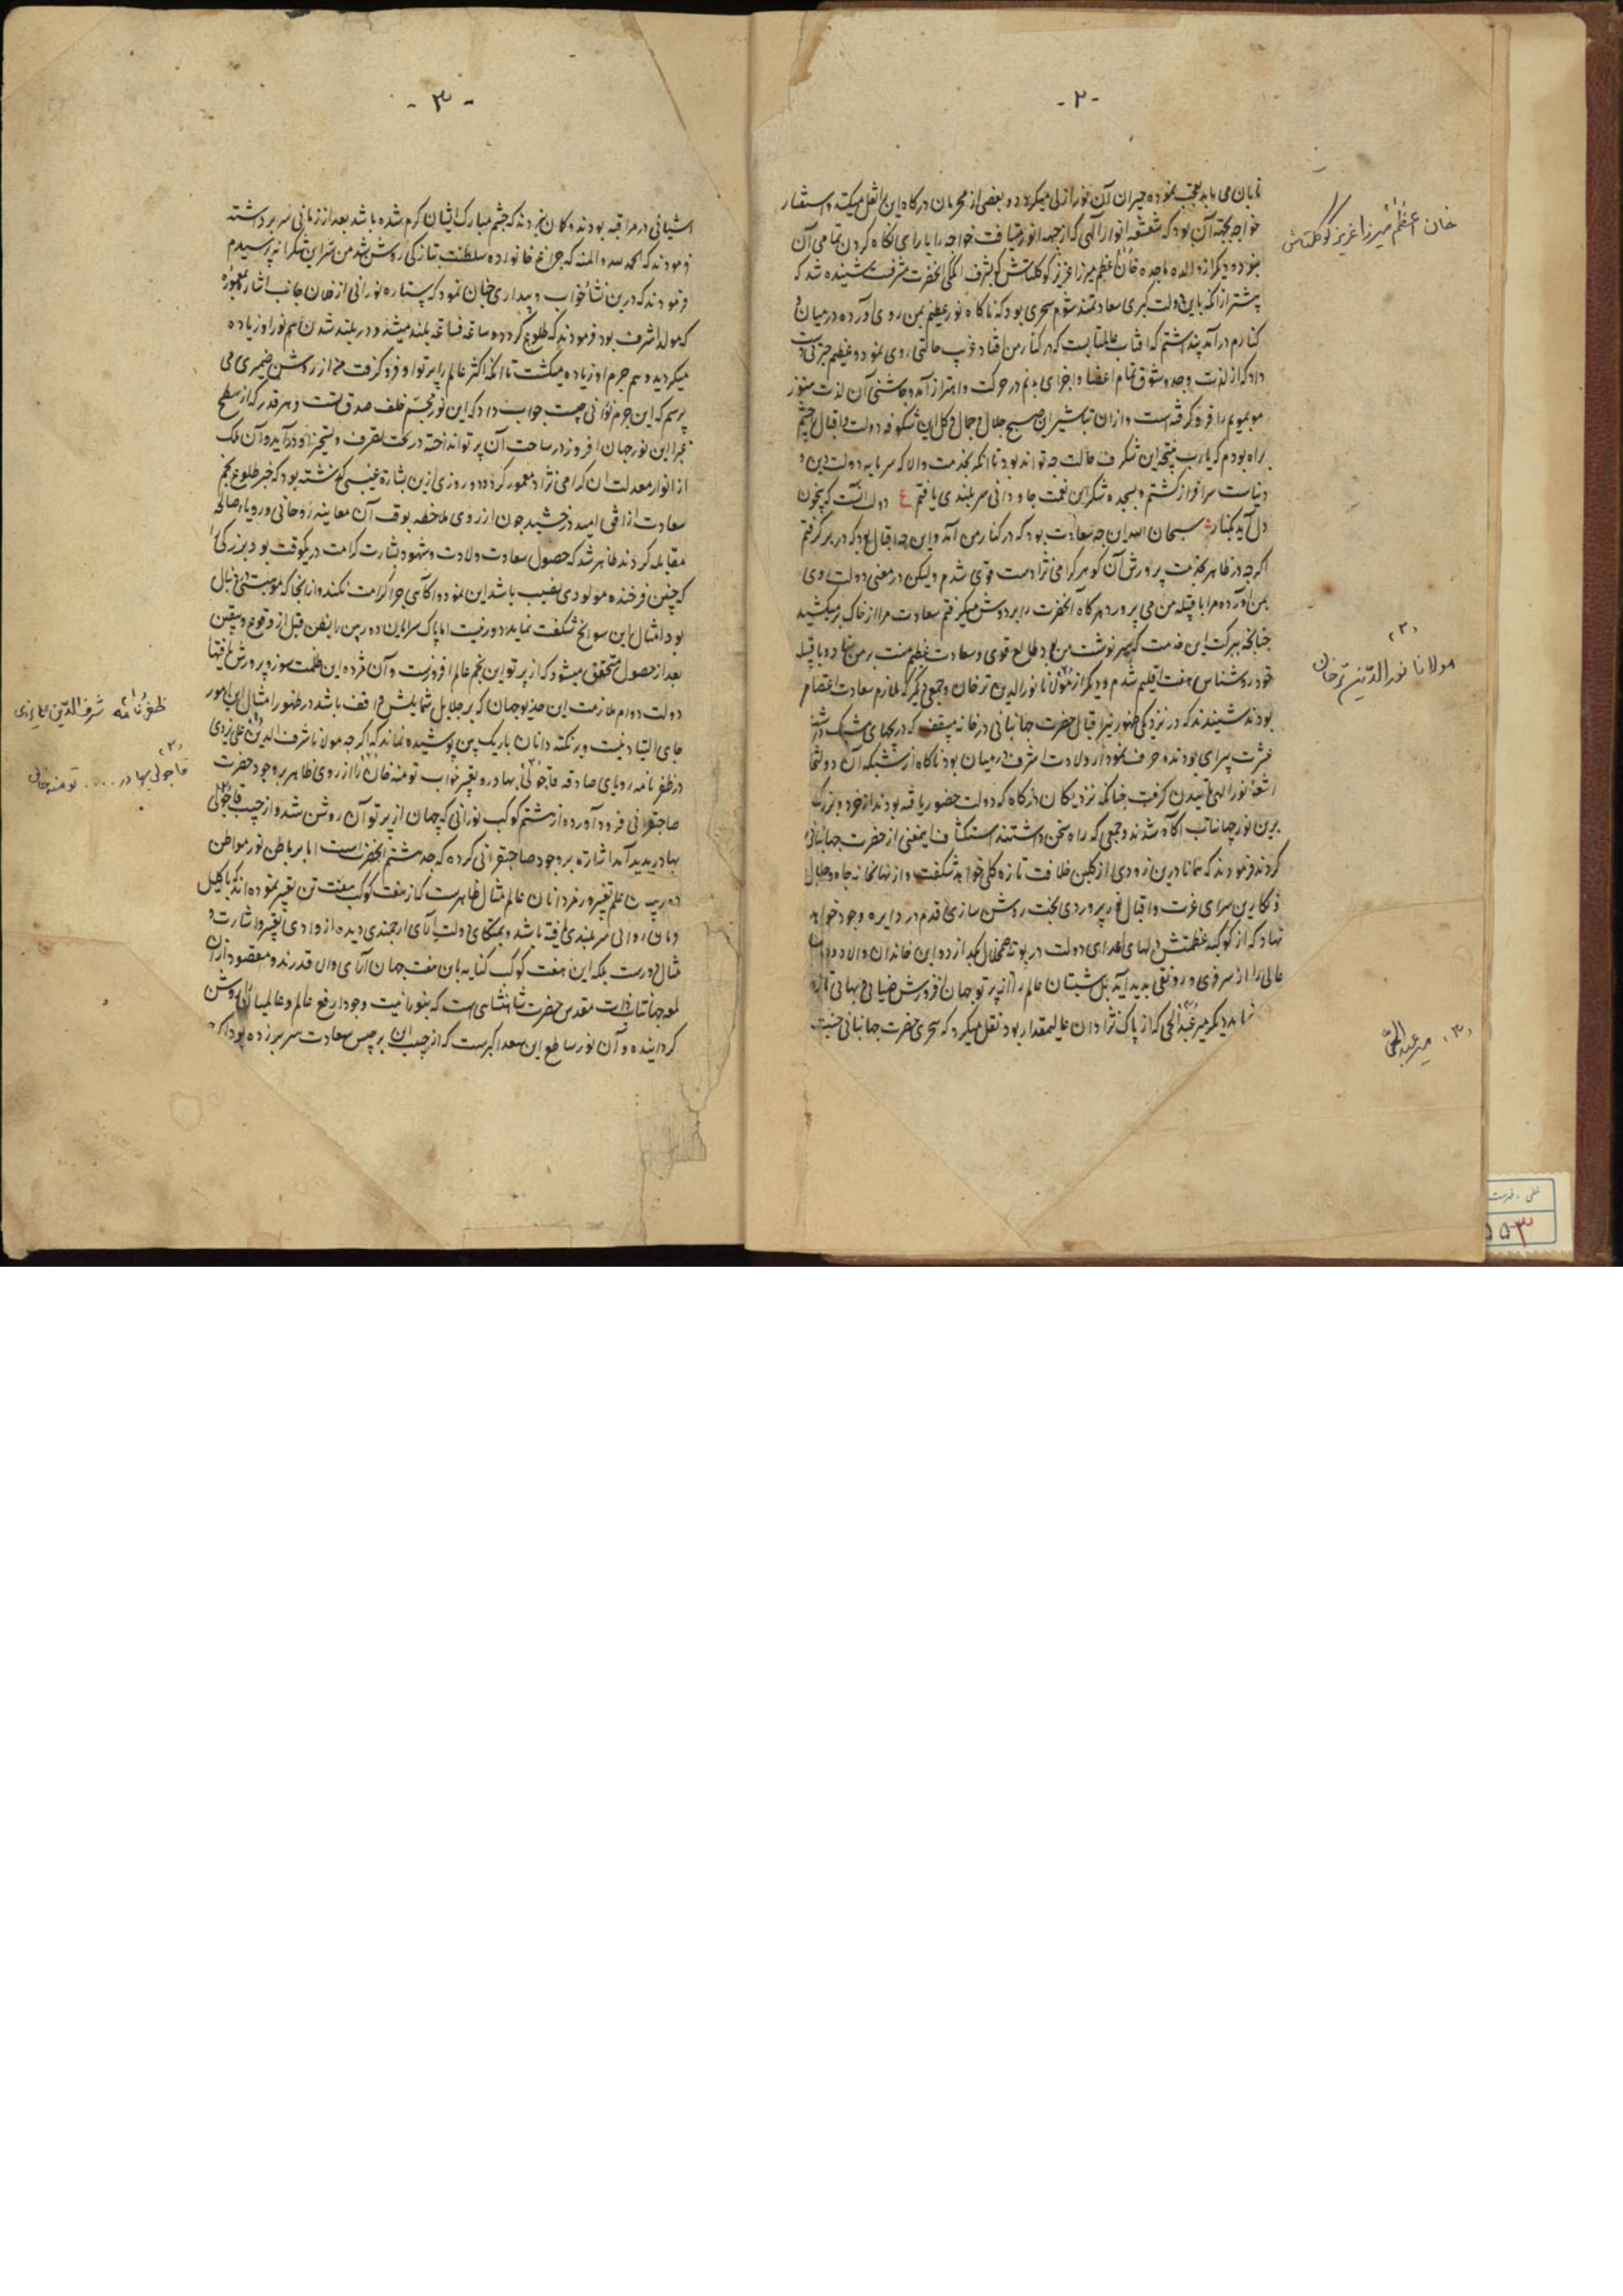 - ۲ -
تابان می یابد تعجب نموده حیران آن نور ازلی میگردد و بعضی از محرمان درگاه این نقل میکند و استفسار
خواجه بجهة آن بود که شعشعه انوار الهی که از جبهه انور میتافت خواجه را یارای نگاه کردن تمامی آن
نبود و دیگر از والده ماجده خان اعظم میرزا عزیز کوکلتاش که بشرف انگکی آنحضرت مشرفست شنیده شد که
پیشتر از آنکه باین دولت کبری سعادتمند شوم سحری بود که ناگاه نور عظیم بمن روی آورده در میان
کنارم در آمد پنداشتم که آفتاب عالمتابست که در کنار من افتاد غریب حالتی روی نمود و عظیم حیرتی دست
داد که از لذت وجد و شوق تمام اعضا و اجزای بدنم در حرکت و اهتزاز آمد و چاشنی آن لذت هنوز
موبمویم را فرو گرفته است و از آن تباشیر این صبح جلال و جمال و گل این شکوفه دولت و اقبال چشم
براه بودم که یارب نتیجه این شگرف حالت چه تواند بود تا آنکه بخدمت والا که سرمایه دولت دین و
دنیاست سرافراز گشتم و بسجده شکر این نعمت جاودانی سربلندی یافتم ع دولت آنست که بیخون
دل آید بکنار سبحان الله این چه سعادت بود که در کنار من آمد و این چه اقبال بود که در بر گرفتم
اگرچه در ظاهر بخدمت پرورش آن گوهر گرامی نژاد دست قوی شدم ولیکن در معنی دولت روی
بمن آورده مرا با قبیله من می پرورد هرگاه آنحضرت را بر دوش میگرفتم سعادت مرا از خاک برمیکشید
چنانچه ببرکت این خدمت که سرنوشت من بود طالع قوی و سعادت عظیم منت بر من نهاده با قبیله
خود روشناس هفت اقلیم شدم و دیگر از مولانا نورالدین ترخان و جمعی دیگر که ملازم سعادت اعتصام
بودند شنیدند که در نزدیکی ظهور نیر اقبال حضرت جهانبانی در خانه مسقف که دریچهای مشبک داشت
عشرت پیرای بودند و حرف نمودار ولادت اشرف در میان بود ناگاه از شبکه آن دولتخانه
اشعه نور الهی تابیدن گرفت چنانکه نزدیکان درگاه که دولت حضور یافته بودند از خرد و بزرگ
برین نور جهانتاب آگاه شدند و جمعی که راه سخن داشتند استکشاف اینمعنی از حضرت جهانبانی
کردند فرمودند که همانا درین زودی از گلبن خلافت تازه گلی خواهد شکفت و از نهانخانه جاه و جلال
و نگارین سرای عزت و اقبال نور پروردی بخت روشن سازی قدم در دایره وجود خواهد
نهاد که از کوکبه عظمتش دلهای اعدای دولت در بوته اضمحلال بگدازد و این خاندان و الا دودمان
عالی را از سر فری و رونقی پدید آید بل شبستان عالم را از پرتو جهان افروزش ضیائی و بهائی تازه
نماید دیگر میر عبدالحی که از پاک نژادان عالیمقدار بود نقل میکرد که سحری حضرت جهانبانی جنت
خان اعظم میرزا عزیز کوکلتاش
(۲)
مولانا نورالدین ترخان
(۳) میر عبدالحی
- ۳ -
آشیانی در مراقبه بودند و گمان بردند که چشم مبارک ایشان گرم شده باشد بعد از زمانی سر برداشته
فرمودند که الحمد لله والمنة که چراغ خانواده سلطنت بتازگی روشن شد من سر این شکرانه پرسیدم
فرمودند که درین نشأ خواب و بیداری چنان نمود که ستاره نورانی از همان جانب اشارت نموده
که مولد اشرف بود فرمودند که طلوع کرد و ساعة فساعة بلند میشد و در بلند شدن هم نور او زیاده
میگردید و هم جرم او زیاده میگشت تا آنکه اکثر عالم را پرتو او فرو گرفت من از روشن ضمیری می
پرسم که این جرم نورانی چیست جواب داد که این نور مجسم خلف صدق تست و هر قدر که از سطح
غبرا این نور جهان افروز در ساحت آن پرتو انداخته در تحت تصرف و تسخیر او درآید و آن ملک
از انوار معدلت آن گرامی نژاد معمور گردد و دو روزی ازین بشاره غیبی گذشته بود که خبر طلوع نجم
سعادت از افق امید درخشید چون از روی ملاحظه بوقت آن معاینه روحانی و رویاء صالحه
مقابله کردند ظاهر شد که حصول سعادت ولادت و شهود بشارت کرامت در یکوقت بود بزرگی را
که چنین فرخنده مولودی نصیب باشد این نمود و آگاهی چرا کرامت نکنند و از آنجا که موهبتی در خیال
بود امثال این سوانح شگفت نماید دور نیست اما پاک سرایان دوربین را یقین قبل از وقوع و یقین
بعد از حصول متحقق میشود که از پرتو این نجم عالم افروزست و آن مژده این ظلمت سوز و پرورش یافتهای
دولت دوام ملازمت این خدیو جهان که بر جلایل شمایلش واقف باشد در ظهور امثال این امور
جای التباد نیست و بر نکته دانان باریک بین پوشیده نماند که اگرچه مولانا شرف الدین علی یزدی
در ظفرنامه رویای صادقه قاجولی بهادر و تعبیر خواب تومنه خان را از روی ظاهر بر وجود حضرت
صاحبقرانی فرود آورده از هشتم کوکب نورانی که جهان از پرتو آن روشن شد و از جیب قاجولی
بهادر پدید آمد اشاره بر وجود صاحبقرانی کرده که جد هشتم آنحضرتست اما بر باطن نور مواطن
علم تعبیر و رمزدانان عالم مثال ظاهرست که از هفت کوکب هفت تن تعبیر نموده اند که باکلیل
فرمان روائی سربلندی یافته باشد و بمتکای دولت آرای ارجمندی دیده از وادی تعبیر و اشارت
مثال دورست بلکه این هفت کوکب کنایه بآن هفت جهان آرای والا قدرند و مقصود از آن
لمعه جهانتاب ذات مقدس حضرت شاهنشاهی است که بنورانیت وجود ارفع عالم و عالمیان را روشن
گردانیده و آن نور ساطع این سعد اکبرست که از جیب آن برجیس سعادت سر بر زده بود اگرچه
ظفرنامه شرف الدین علی یزدی
(۲)
قاجولی بهادر .... تومنه خان
۵۵۳